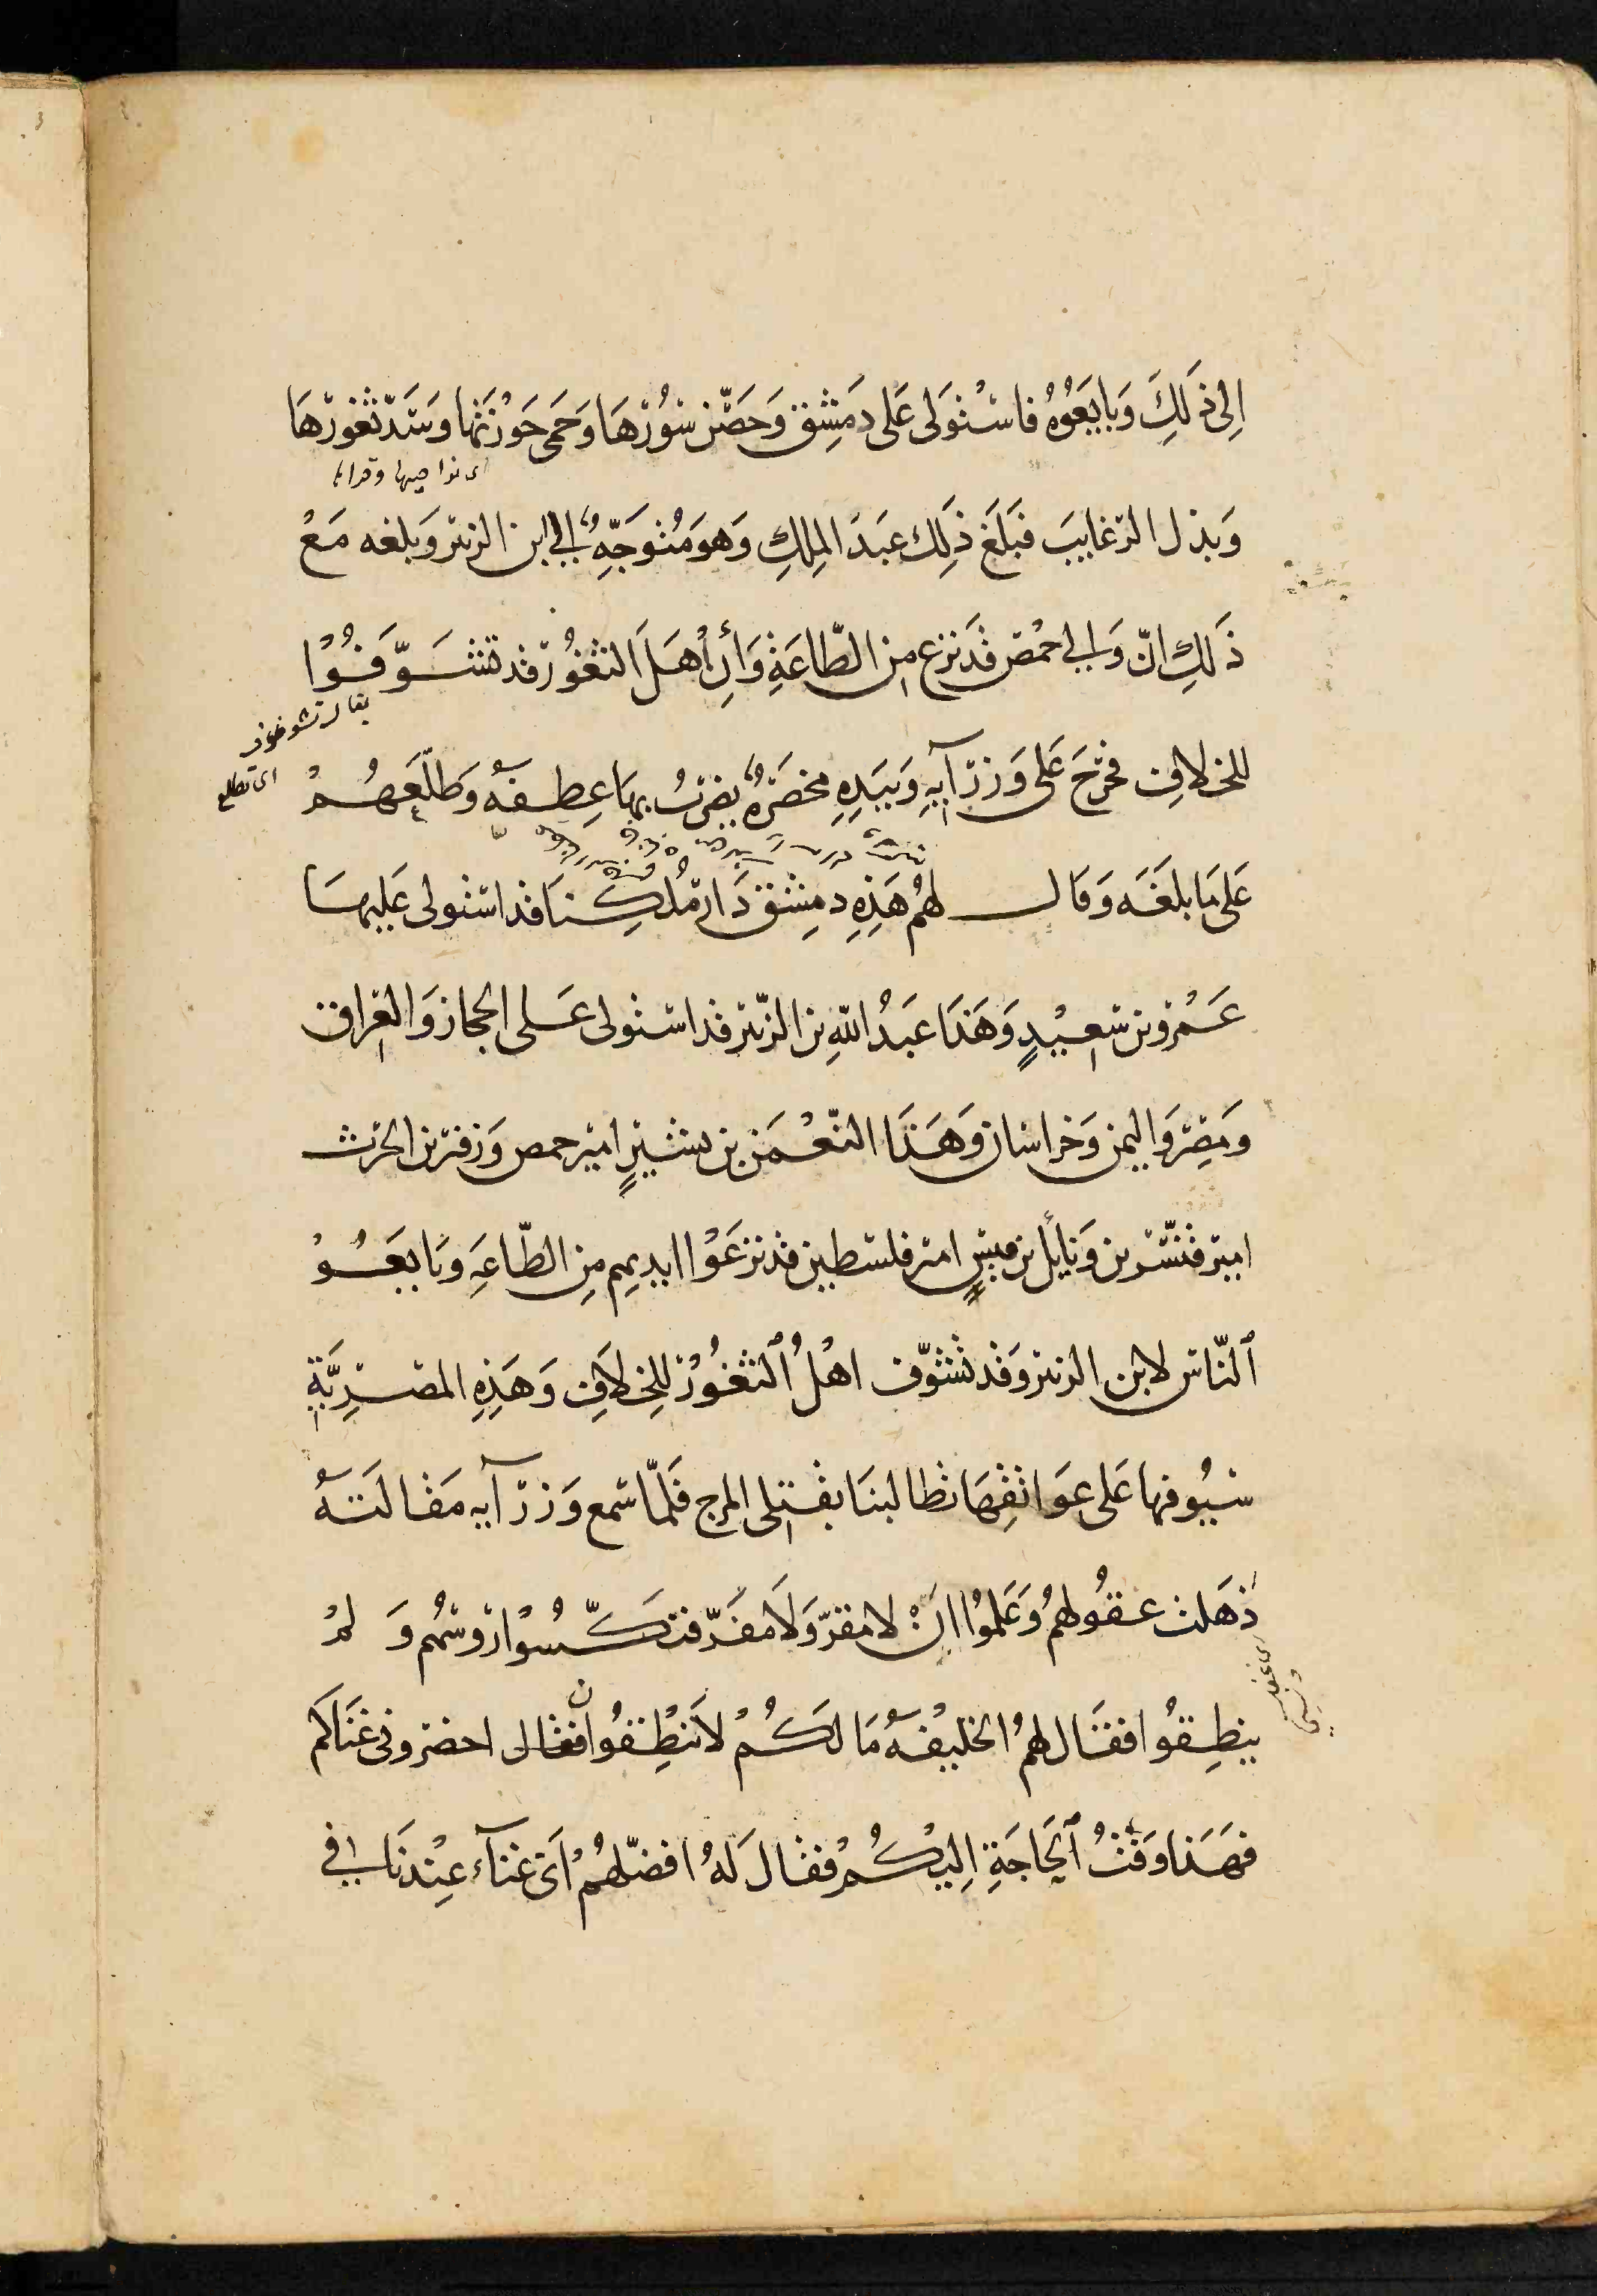 اِلى ذَلِكَ وَبايَعُوْهُ فاسْتَولى عَلى دِمَشِق وَحَصَّن سُوْرَهَا وَحَمى حَوْزَتَها وَسَدَّ ثغورَهَا
اى نواحيها
وَبذل الرّغايبَ فبَلَغَ ذَلِكَ عَبدَ الملِكِ وَهوَ مُتوَجّهٌ الى ابن الزبير وَبلغه مَعَ
ذَلكِ انّ وَالى حمْص قدْ نزع مِن الطّاعَةِ وَأنّ أهلَ الثغُور قد تشَوَّفُوْا
يقال تشوف
اى تطلع
للخلافة فخرَجَ عَلى وُزرَآيهِ وَبيَدِهِ مخصَرَةٌ يضربُ بهَا عِطفَهُ وَطلّعَهُمْ
عَلى مَا بلغَه وَقال لهُمْ هَذِهِ دمِشق دَار مُلكِنا قد استولى عَليهَا
عَمْرو بن سَعِيْدٍ وَهَذا عَبدُ اللهِ بن الزّبير قد استولى عَلى الحجاز وَالعِراق
ومَصِر وَاليمن وَخراسان وَهَذا النّعْمَن بن بشيرٍ امير حمص وَزفر بن الحرث
امير قنّسرين وَنايل بن قيسٍ امير فلسطين قد نزعَوْا ايديهم مِن الطّاعَةِ وَبَايعَوْ
ٱلنّاس لابن الزبير وَقد تشوّف اهْلُ ٱلثغُوْر للخِلاَفة وَهَذِهِ المضرِيَّة
سُيُوفها عَلى عَوَاتقِهَا تطالبنَا بقتلى المرج فَلمّا سَمع وُزرَآيه مَقالتَهُ
ذهَلت عقولهُمْ وَعَلِمُوْا انْ لا مقرّ وَلاَ مفَرّ فنكّسُوْا رؤسَهُم وَ لمْ
ينطِقُوا فقَال لهمُ الخليفهُ مَا لكُمْ لاَ تنْطِقُوان فقال احضروني غنَاكَم
فهَذا وَقتُ ٱلحَاجَةِ اِليْكُمْ فقال لَهُ افضلهُمْ اَىّ غنآء عِنْدنَا فى